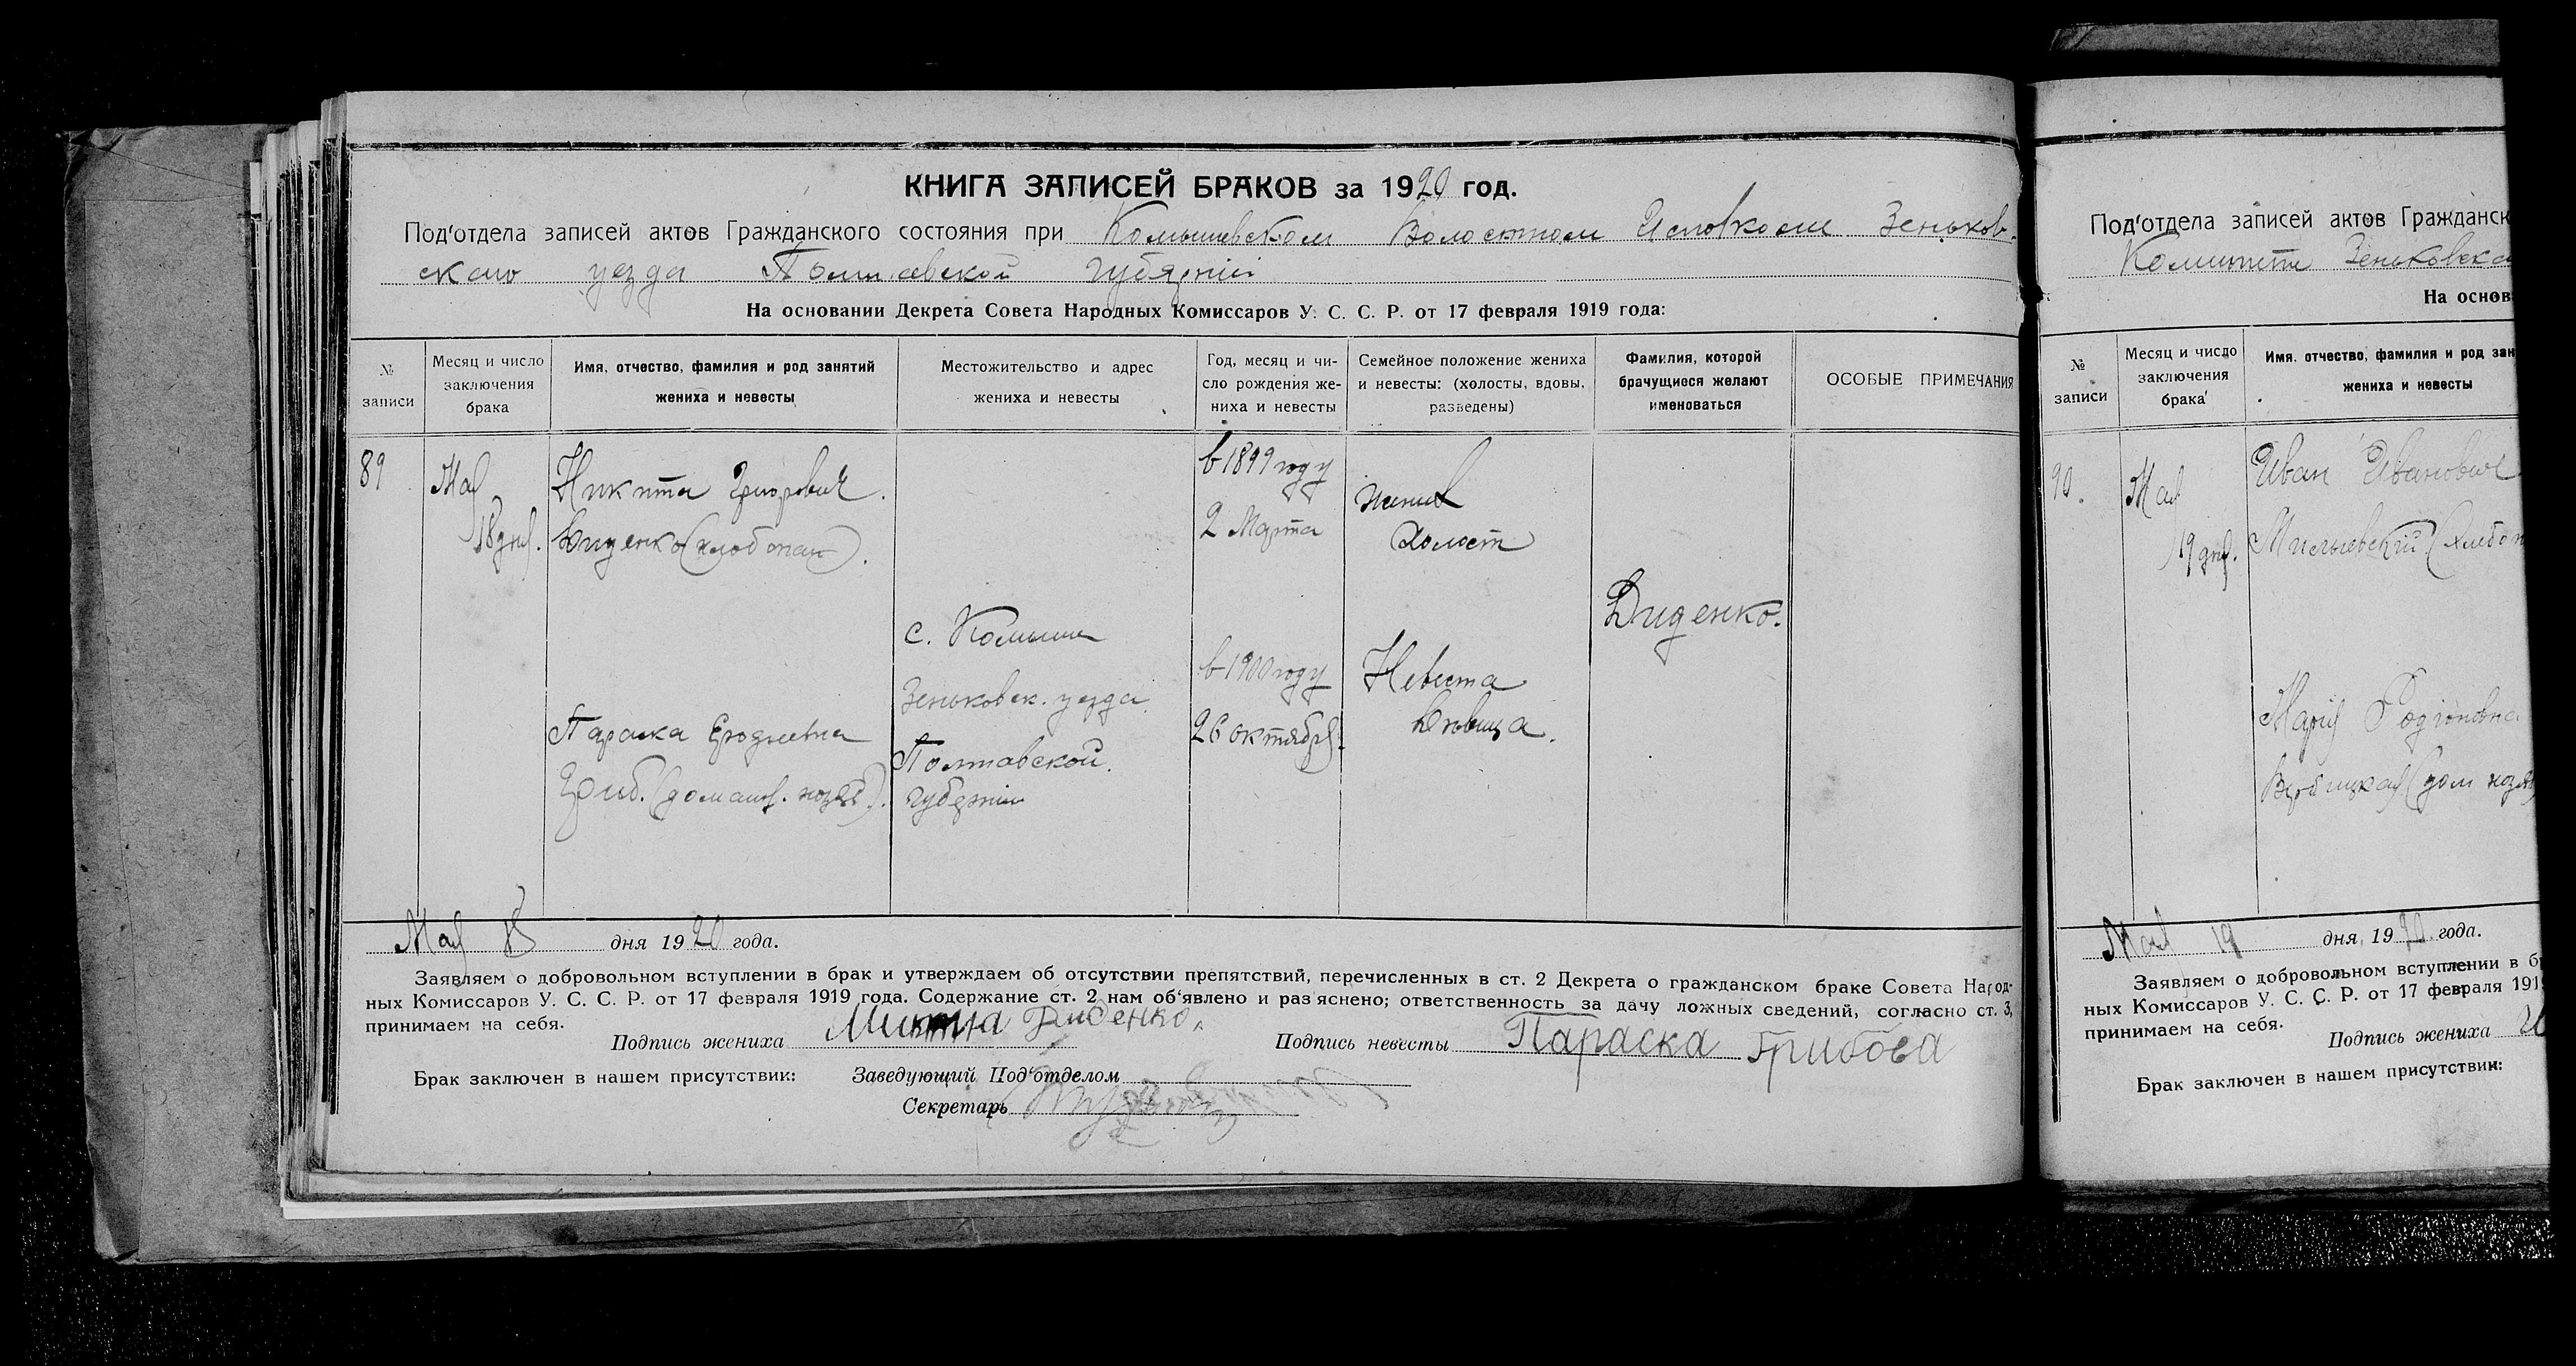 КНИГА ЗАПИСЕЙ БРАКОВ за 1920 год.
Под'отдела записей актов Гражданского состояния при Комышевском Волостном Исполкоме Зеньков-
ского уезда Полтавской губернии
На основании Декрета Совета Народных Комиссаров У. С. С. Р. от 17 февраля 1919 года:
№ записи
Месяц и число заключения брака
Имя, отчество, фамилия и род занятий жениха и невесты
Местожительство и адрес жениха и невесты
Год, месяц и чи-
сло рождения же-
ниха и невесты
Семейное положение жениха и невесты: (холосты, вдовы, разведены)
Фамилия, которой брачущиеся желают именоваться
ОСОБЫЕ ПРИМЕЧАНИЯ
89
Мая
18 дня.
Никита Григорович.
Диденко (хлебопаш).
Параска
Гриб. (домашн. хозяй).
с. Комыши
Зеньковск. уезда.
Полтавской.
губернии
в 1899 году
2 Марта
в 1900 году
26 октября.
жених
Холост
Невеста
Девица.
Диденко.
Мая 18 дня 1920 года.
Заявляем о добровольном вступлении в брак и утверждаем об отсутствии препятствий, перечисленных в ст. 2 Декрета о гражданском браке Совета Народ-
ных Комиссаров У. С. С. Р. от 17 февраля 1919 года. Содержание ст. 2 нам об'явлено и раз'яснено; ответственность за дачу ложных сведений, согласно ст. 3,
принимаем на себя.
Подпись жениха Микита Диденко.
Подпись невесты Параска Грибова
Брак заключен в нашем присутствии: Заведующий Под'отделом
Секретарь
Под'отдела записей актов Гражданск
Комитете Зеньковска
На основ
№ записи
Месяц и число заключения брака
Имя, отчество, фамилия и род зан
жениха и невесты
90.
Мая
19 дня.
Иван Иванович
(хлебоп
Марія Родіоновна
Вербицкая (дом хозяй
Мая 19 дня, 1920 года.
Заявляем о добровольном вступлении в б
ных Комиссаров У. С. С. Р. от 17 февраля 191
принимаем на себя.
Подпись жениха
Брак заключен в нашем присутствии: